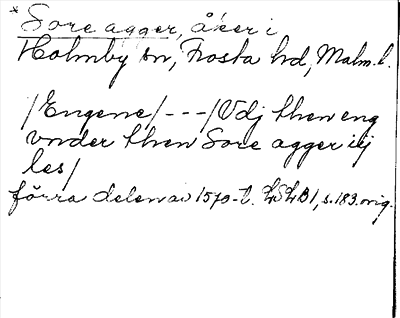 * Sore agger, åker i
Holmby sn, Frosta hd, Malm. l.
/Engene/---/Vdj then eng
vnder then Sore agger iij
les/
förra delen av 1570-t. LSLB1, s. 183. orig.